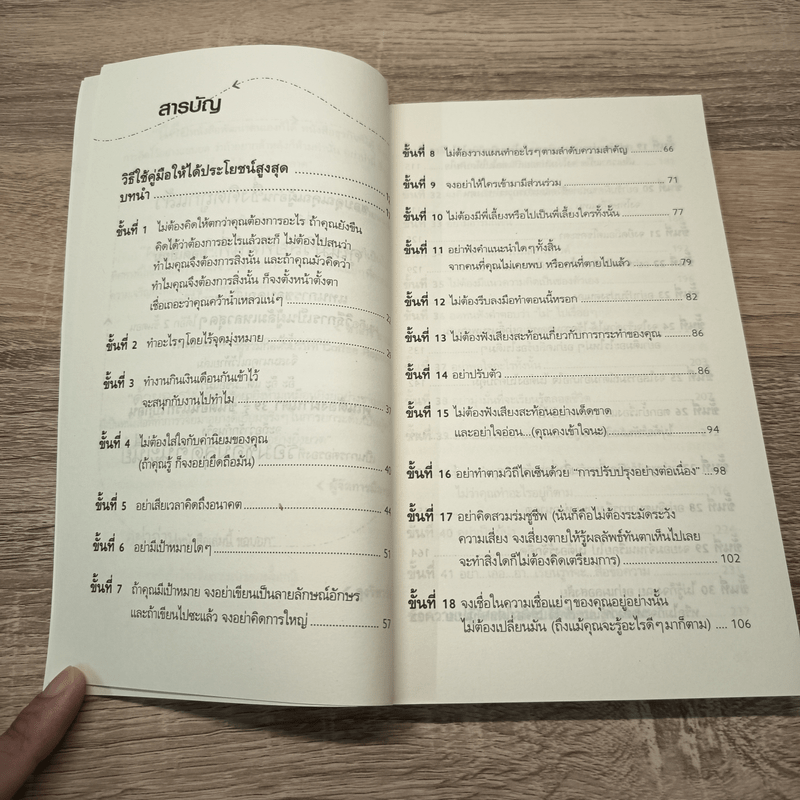 สารบัญ
วิธีใช้คู่มือให้ได้ประโยชน์สูงสุด
บทนำ
ขั้นที่ 1 ไม่ต้องคิดให้ตกว่าคุณต้องการอะไร ถ้าคุณยังขืน
คิดได้ว่าต้องการอะไรแล้วละก็ ไม่ต้องไปสนว่า
ทำไมคุณจึงต้องการสิ่งนั้น และถ้าคุณมัวคิดว่า
ทำไมคุณจึงต้องการสิ่งนั้น ก็จงตั้งหน้าตั้งตา
เชื่อเถอะว่าคุณคว้าน้ำเหลวแน่ๆ
ขั้นที่ 2 ทำอะไรๆ โดยไร้จุดมุ่งหมาย
ขั้นที่ 3 ทำงานกินเงินเดือนกันเข้าไว้
จะสนุกกับงานไปทำไม 31
ขั้นที่ 4 ไม่ต้องใส่ใจกับค่านิยมของคุณ
(ถ้าคุณรู้ ก็จงอย่ายึดถือมัน) 40
ขั้นที่ 5 อย่าเสียเวลาคิดถึงอนาคต 44
ขั้นที่ 6 อย่ามีเป้าหมายใดๆ 51
ขั้นที่ 7 ถ้าคุณมีเป้าหมาย จงอย่าเขียนเป็นลายลักษณ์อักษร
และถ้าเขียนไปซะแล้ว จงอย่าคิดการใหญ่ 57
ขั้นที่ 8 ไม่ต้องวางแผนทำอะไรๆ ตามลำดับความสำคัญ 66
ขั้นที่ 9 จงอย่าให้ใครเข้ามามีส่วนร่วม 71
ขั้นที่ 10 ไม่ต้องมีพี่เลี้ยงหรือไปเป็นพี่เลี้ยงใครทั้งนั้น 77
ขั้นที่ 11 อย่าฟังคำแนะนำใดๆ ทั้งสิ้น
จากคนที่คุณไม่เคยพบ หรือคนที่ตายไปแล้ว 79
ขั้นที่ 12 ไม่ต้องรีบลงมือทำตอนนี้หรอก 82
ขั้นที่ 13 ไม่ต้องฟังเสียงสะท้อนเกี่ยวกับการกระทำของคุณ 86
ขั้นที่ 14 อย่าปรับตัว 86
ขั้นที่ 15 ไม่ต้องฟังเสียงสะท้อนอย่างเด็ดขาด
และอย่าใจอ่อน...(คุณคงเข้าใจนะ) 94
ขั้นที่ 16 อย่าทำตามวิถีไคเซ็นด้วย “การปรับปรุงอย่างต่อเนื่อง” 98
ขั้นที่ 17 อย่าคิดสวมร่มชูชีพ (นั่นก็คือไม่ต้องระมัดระวัง
ความเสี่ยง จงเสี่ยงตายให้รู้ผลลัพธ์ทันตาเห็นไปเลย
จะทำสิ่งใดก็ไม่ต้องคิดเตรียมการ) 102
ขั้นที่ 18 จงเชื่อในความเชื่อแย่ๆ ของคุณอยู่อย่างนั้น
ไม่ต้องเปลี่ยนมัน (ถึงแม้คุณจะรู้อะไรดีๆ มาก็ตาม) 106